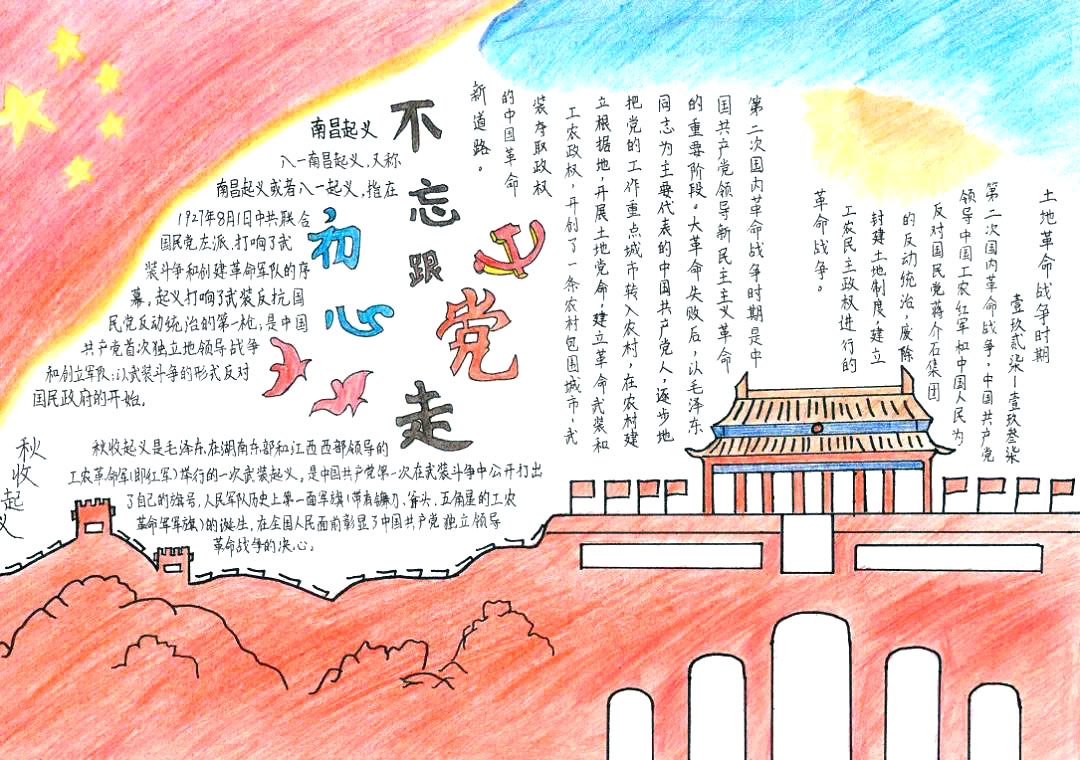 不忘初心
跟党走
南昌起义
八一南昌起义,又称
南昌起义或者八一起义,指在
1927年8月1日中共联合
国民党左派,打响了武
装斗争和创建革命军队的序
幕,起义打响了武装反抗国
民党反动统治的第一枪,是中国
共产党首次独立地领导战争
和创立军队;以武装斗争的形式反对
国民政府的开始。
秋收起义
秋收起义是毛泽东在湖南东部和江西西部领导的
工农革命军(即红军)举行的一次武装起义,是中国共产党第一次在武装斗争中公开打出
了自己的旗号,人民军队历史上第一面军旗(带有镰刀、斧头、五角星的工农
革命军军旗)的诞生,在全国人民面前彰显了中国共产党独立领导
革命战争的决心。
土地革命战争时期
壹玖贰柒—壹玖叁柒
第二次国内革命战争,中国共产党
领导中国工农红军和中国人民为
反对国民党蒋介石集团
的反动统治,废除
封建土地制度,建立
工农民主政权进行的
革命战争。
第二次国内革命战争时期是中
国共产党领导新民主主义革命
的重要阶段。大革命失败后,以毛泽东
同志为主要代表的中国共产党人,逐步地
把党的工作重点城市转入农村,在农村建
立根据地,开展土地党命,建立革命武装和
工农政权,开创了一条农村包围城市,武
装夺取政权
的中国革命
新道路。